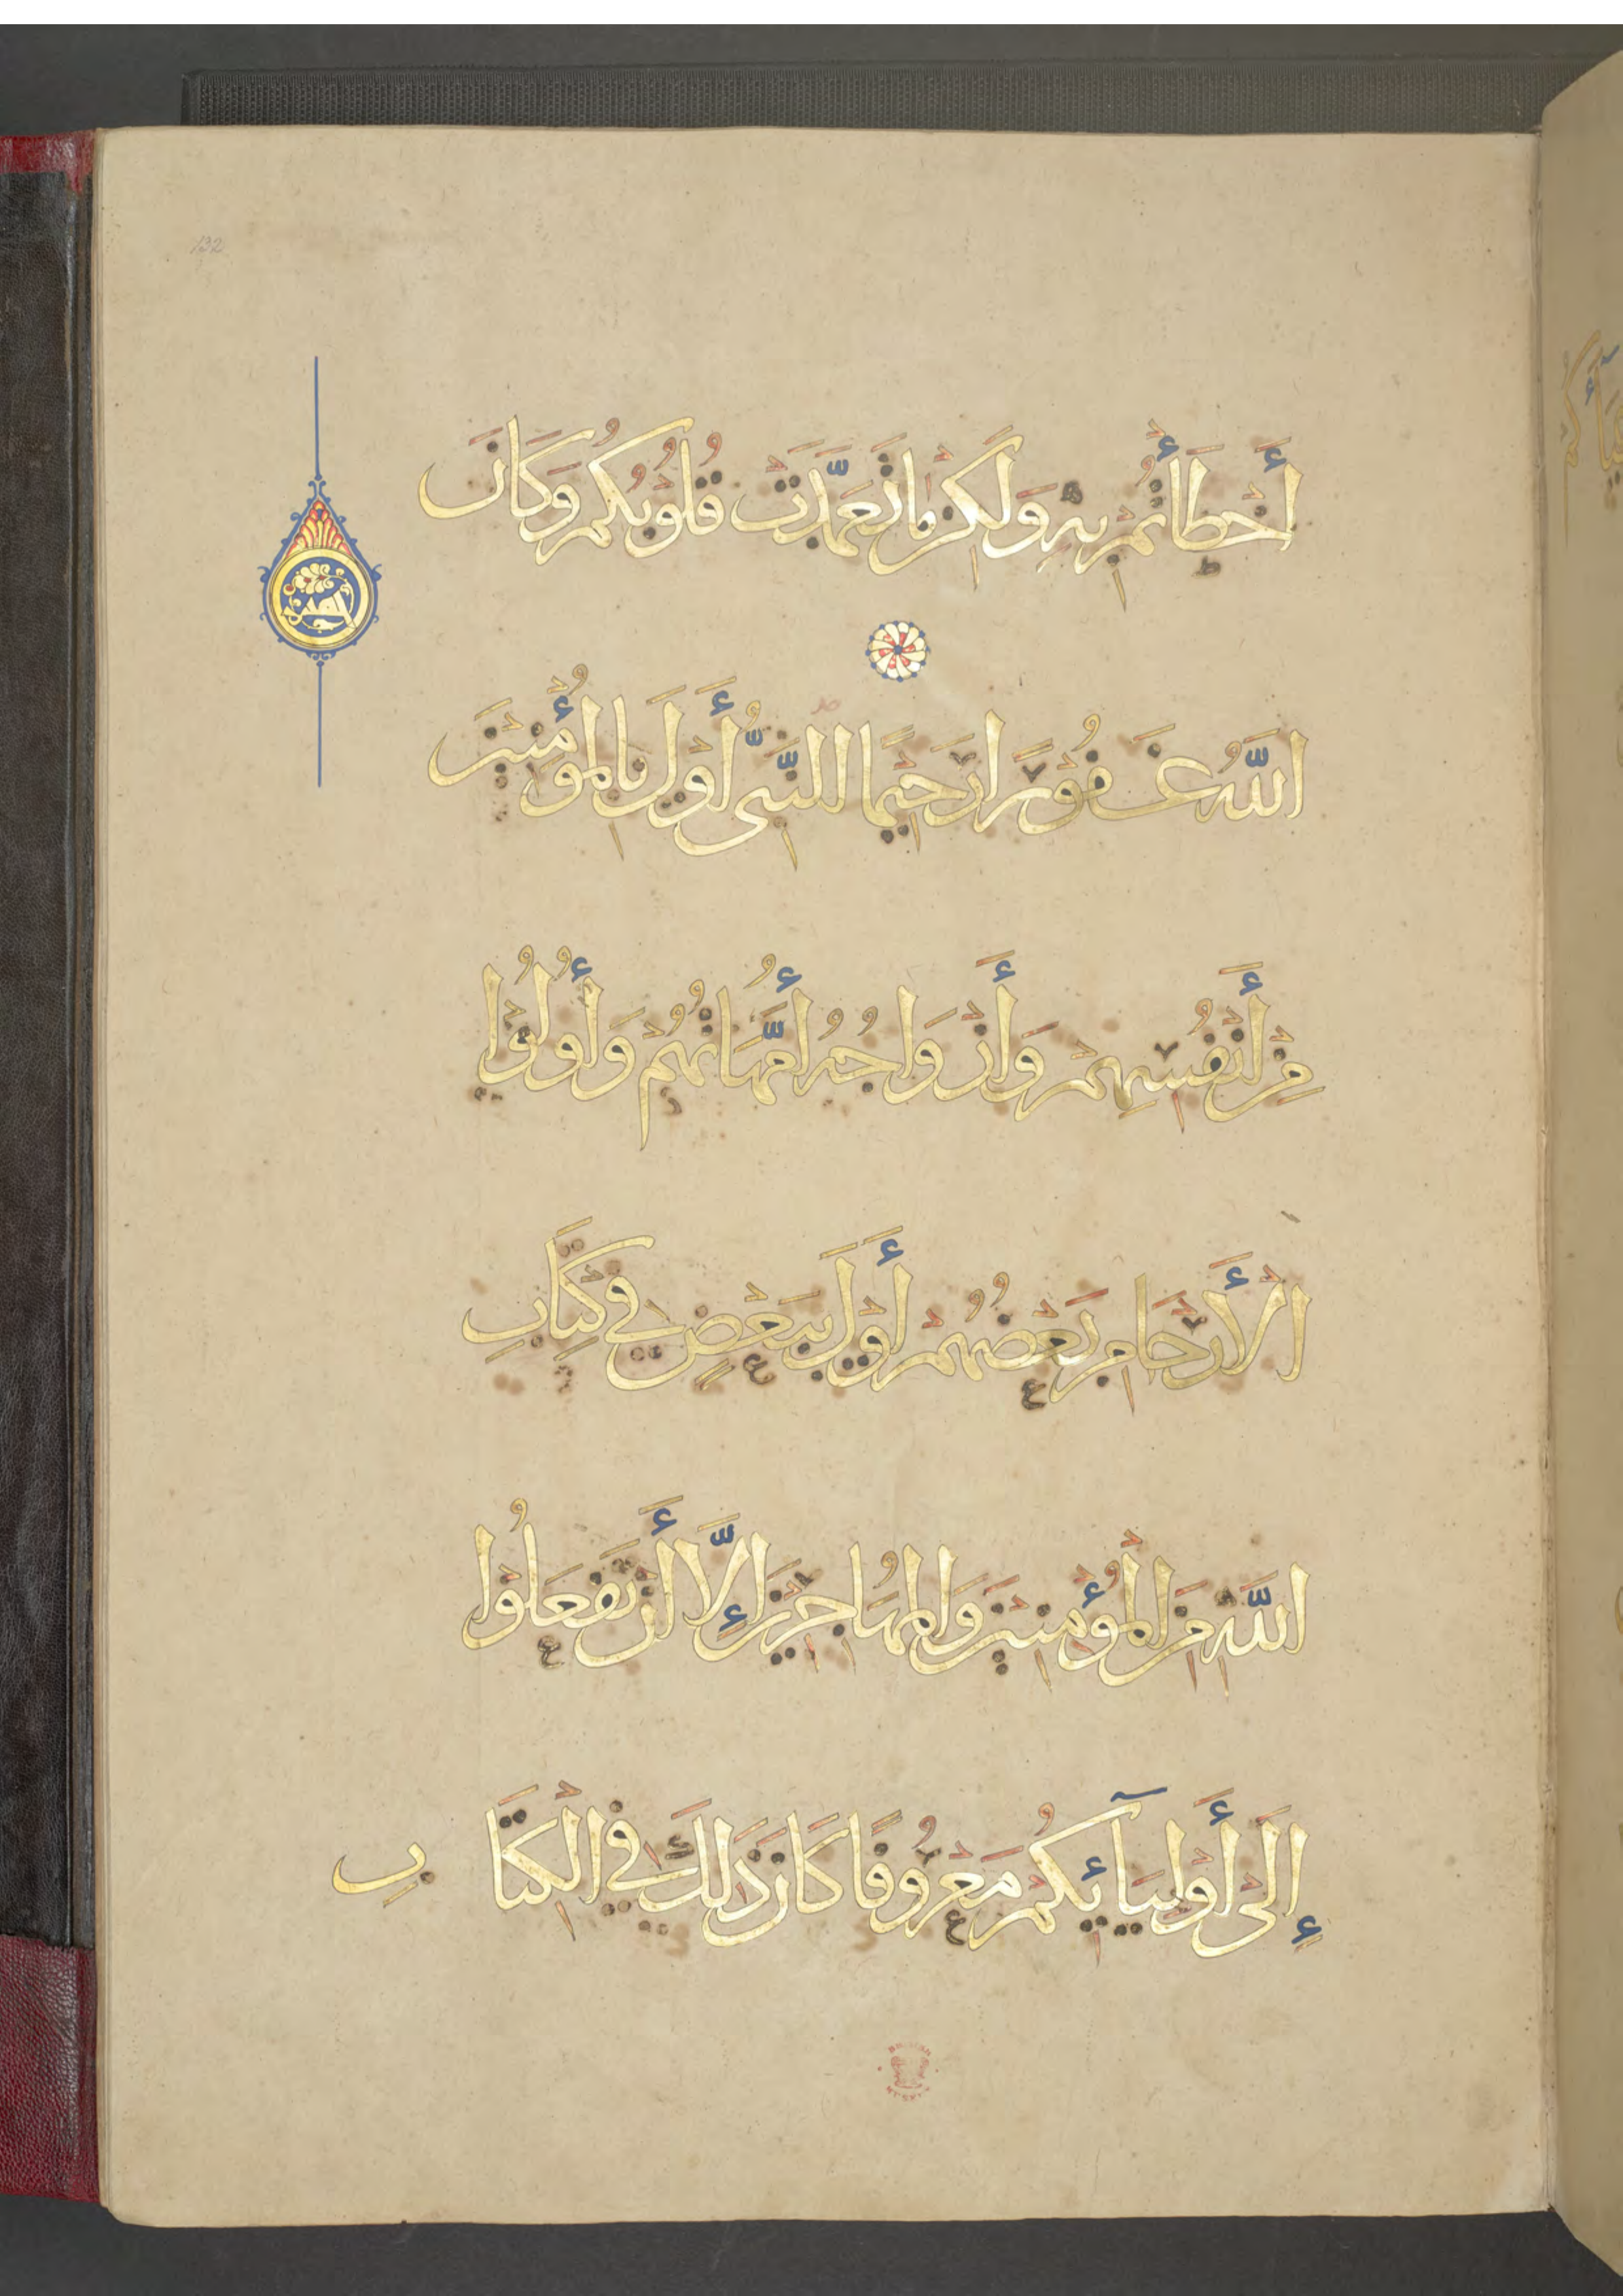 132
أَخْطَأْتُمْ بِهِ وَلَكِنْ مَا تَعَمَّدَتْ قُلُوبُكُمْ وَكَانَ
اللَّهُ غَفُورًا رَحِيمًا النَّبِيُّ أَوْلَى بِالْمُؤْمِنِينَ
مِنْ أَنْفُسِهِمْ وَأَزْوَاجُهُ أُمَّهَاتُهُمْ وَأُولُوا
الْأَرْحَامِ بَعْضُهُمْ أَوْلَى بِبَعْضٍ فِي كِتَابِ
اللَّهِ مِنَ الْمُؤْمِنِينَ وَالْمُهَاجِرِينَ إِلَّا أَنْ تَفْعَلُوا
إِلَى أَوْلِيَآئِكُمْ مَعْرُوفًا كَانَ ذَلِكَ فِي الْكِتَابِ